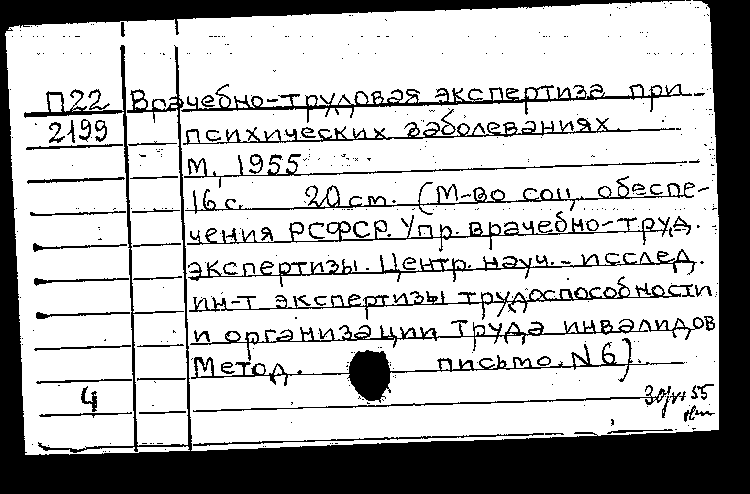 П22 Врачебно-трудовая экспертиза при
2199 психических заболеваниях.
М., 1955
16 с. 20 ст. (М-во соц. обеспе-
чения РСФСР. Упр. врачебно-труд.
экспертизы. Центр. науч.-исслед.
ин-т экспертизы трудоспособности
и организации труда инвалидов
Метод. письмо. N 6).
4
55